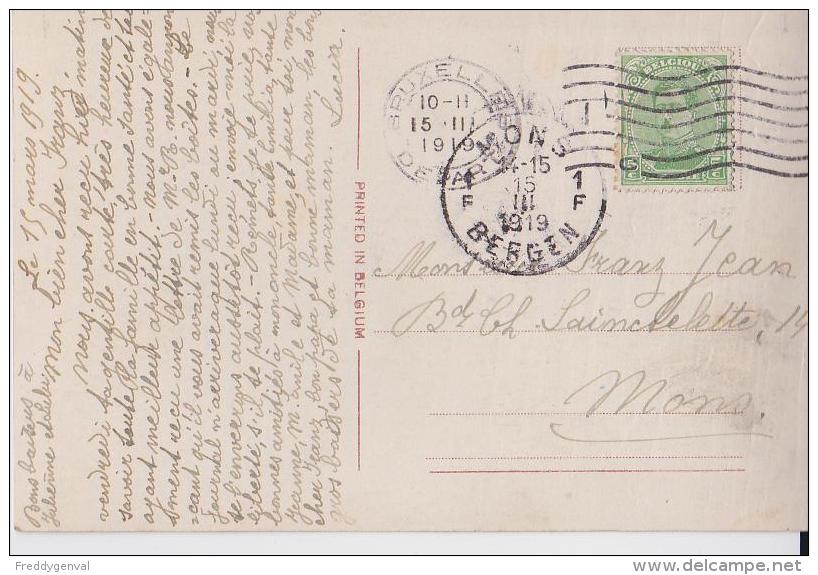 Le 15 mars 1919.
Mon bien cher Franz
Nous avons reçu hier matin
vendredi ta gentille carte, très heureuse de
savoir toute la famille en bonne santé et
ayant meilleur appétit. Nous avons égale-
ment reçu une lettre de Mr R. nous
-çant qu'il vous avait remis les boîtes. - Le
journal n'arrivera que lundi ou mardi,
je l'enverrai aussitôt reçu, envoie moi la
s'il te plait. - Regrets de te
bonnes amitiés à tante Emilia, tante
Jeanne, M. Emile et Madame et pour toi mon
cher Franz bon papa et bonne maman, les
gros baisers de ta maman. Lucia.
Bons baisers à
Julienne
PRINTED IN BELGIUM
BRUXELLES
10-11
15 III
1919
DEPART
MONS
14-15
15
III
1919
BERGEN
1
F
1
F
BELGIQUE
5
5
Monsieur Franz Jean
Bd Ch. Sainctelette, 14
Mons.
Freddygenval
delcampe.net